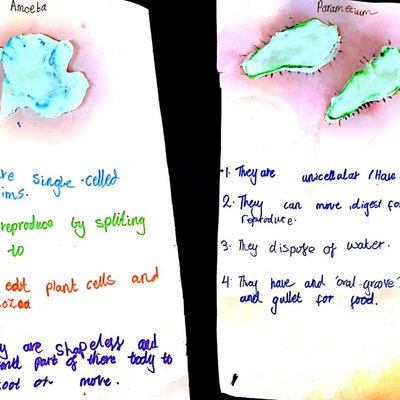 Amoeba
single-celled
reproduce by spliting
to
plant cells and
are shapeless and
part of there body to
move.
Paramecium
1. They are unicellular (Have
2. They can move, digest fo
reproduce.
3. They dispose of water.
4. They have and 'oral-groove'
and gullet for food.